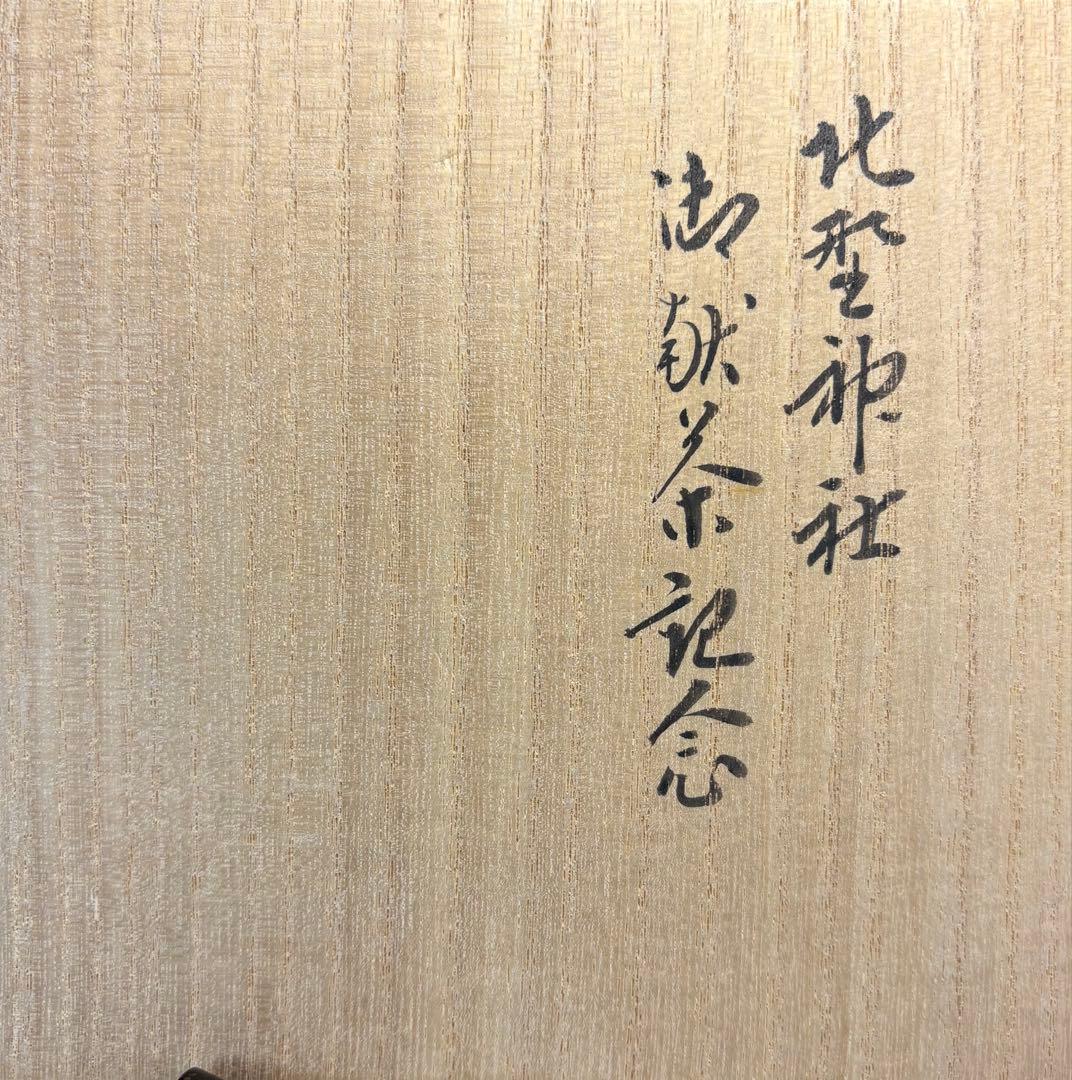 北野神社
御献茶記念